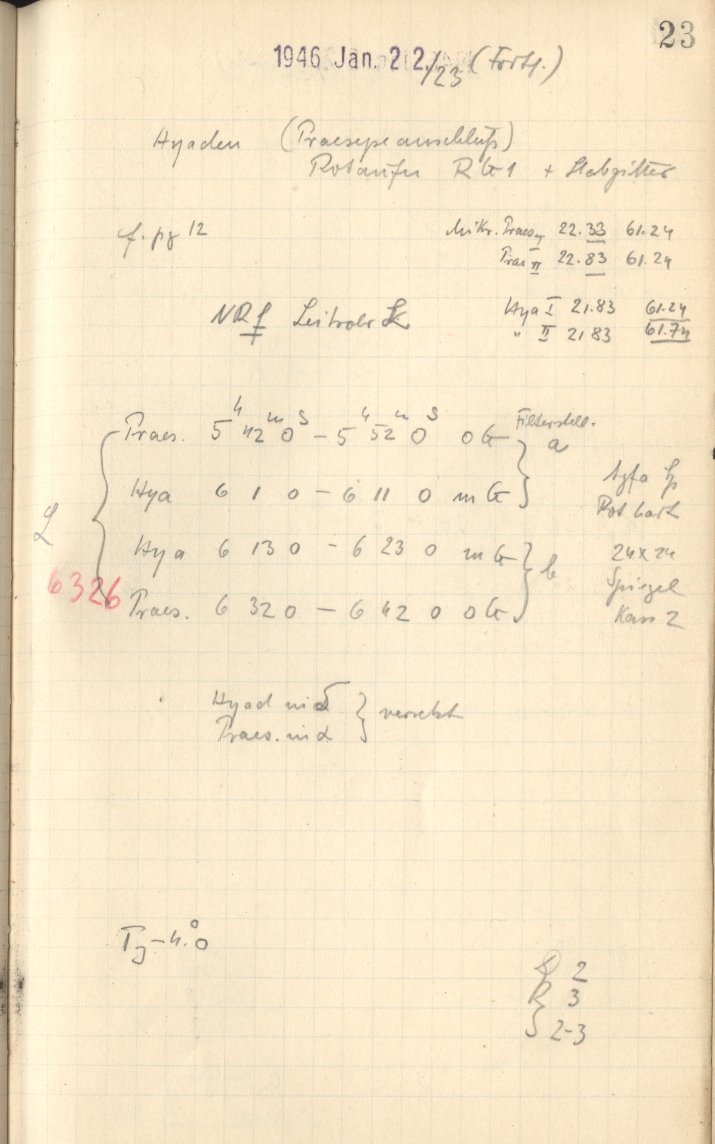 23
1946 Jan. 22./23 (Forts.)
Hyaden (Praesepeanschluß)
Rotaufn RG1 + Stabgitter
f. pg 12
Mikr. Praes I 22.33 61.24
Prae II 22.83 61.24
Hya I 21.83 61.24
" II 21.83 61.74
NRf Leitrohr
Praes. 5h 42m 0s – 5h 52m 0s oG
Filterstell. a
Hya 6 1 0 – 6 11 0 mG
Agfa Sp
Rot hart
L
6326
Hya 6 13 0 – 6 23 0 mG
b
24x24
Spiegel
Praes. 6 32 0 – 6 42 0 oG
Kass 2
Hyad in δ
Praes. in α
} versetzt
T -4.°0
2
R 3
S 2-3